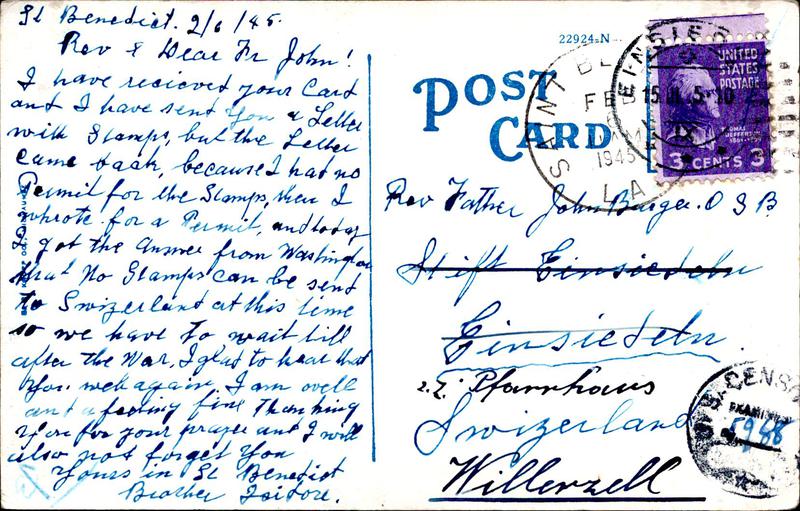 St Benedict. 2/6/45.
Rev & Dear Fr John!
I have recieved your Card
and I have sent You a Letter
with Stamps, but the Letter
came back, because I had no
Permit for the Stamps, then I
whrote for a Permit, and today
I got the Answer from Washington
that No Stamps can be sent
to Swizerland at this time
so we have to wait till
after the War, I glad to hear that
You well again, I am well
and a feeling fine Thanking
You for your prayer and I will
also not forget You
Yours in St Benedict
Brother Isidore.
22924-N
POST
CARD
SAINT BE
FEB
1945
LA
EINSIEDE
15.III.5-10
IX
UNITED
STATES
POSTAGE
3 CENTS 3
Rev Father John Burger. O S B
Stift Einsiedeln
Einsiedeln.
z. Z. Pfarrhaus
Swizerland
Willerzell
CENSO
EXAMINED
5968